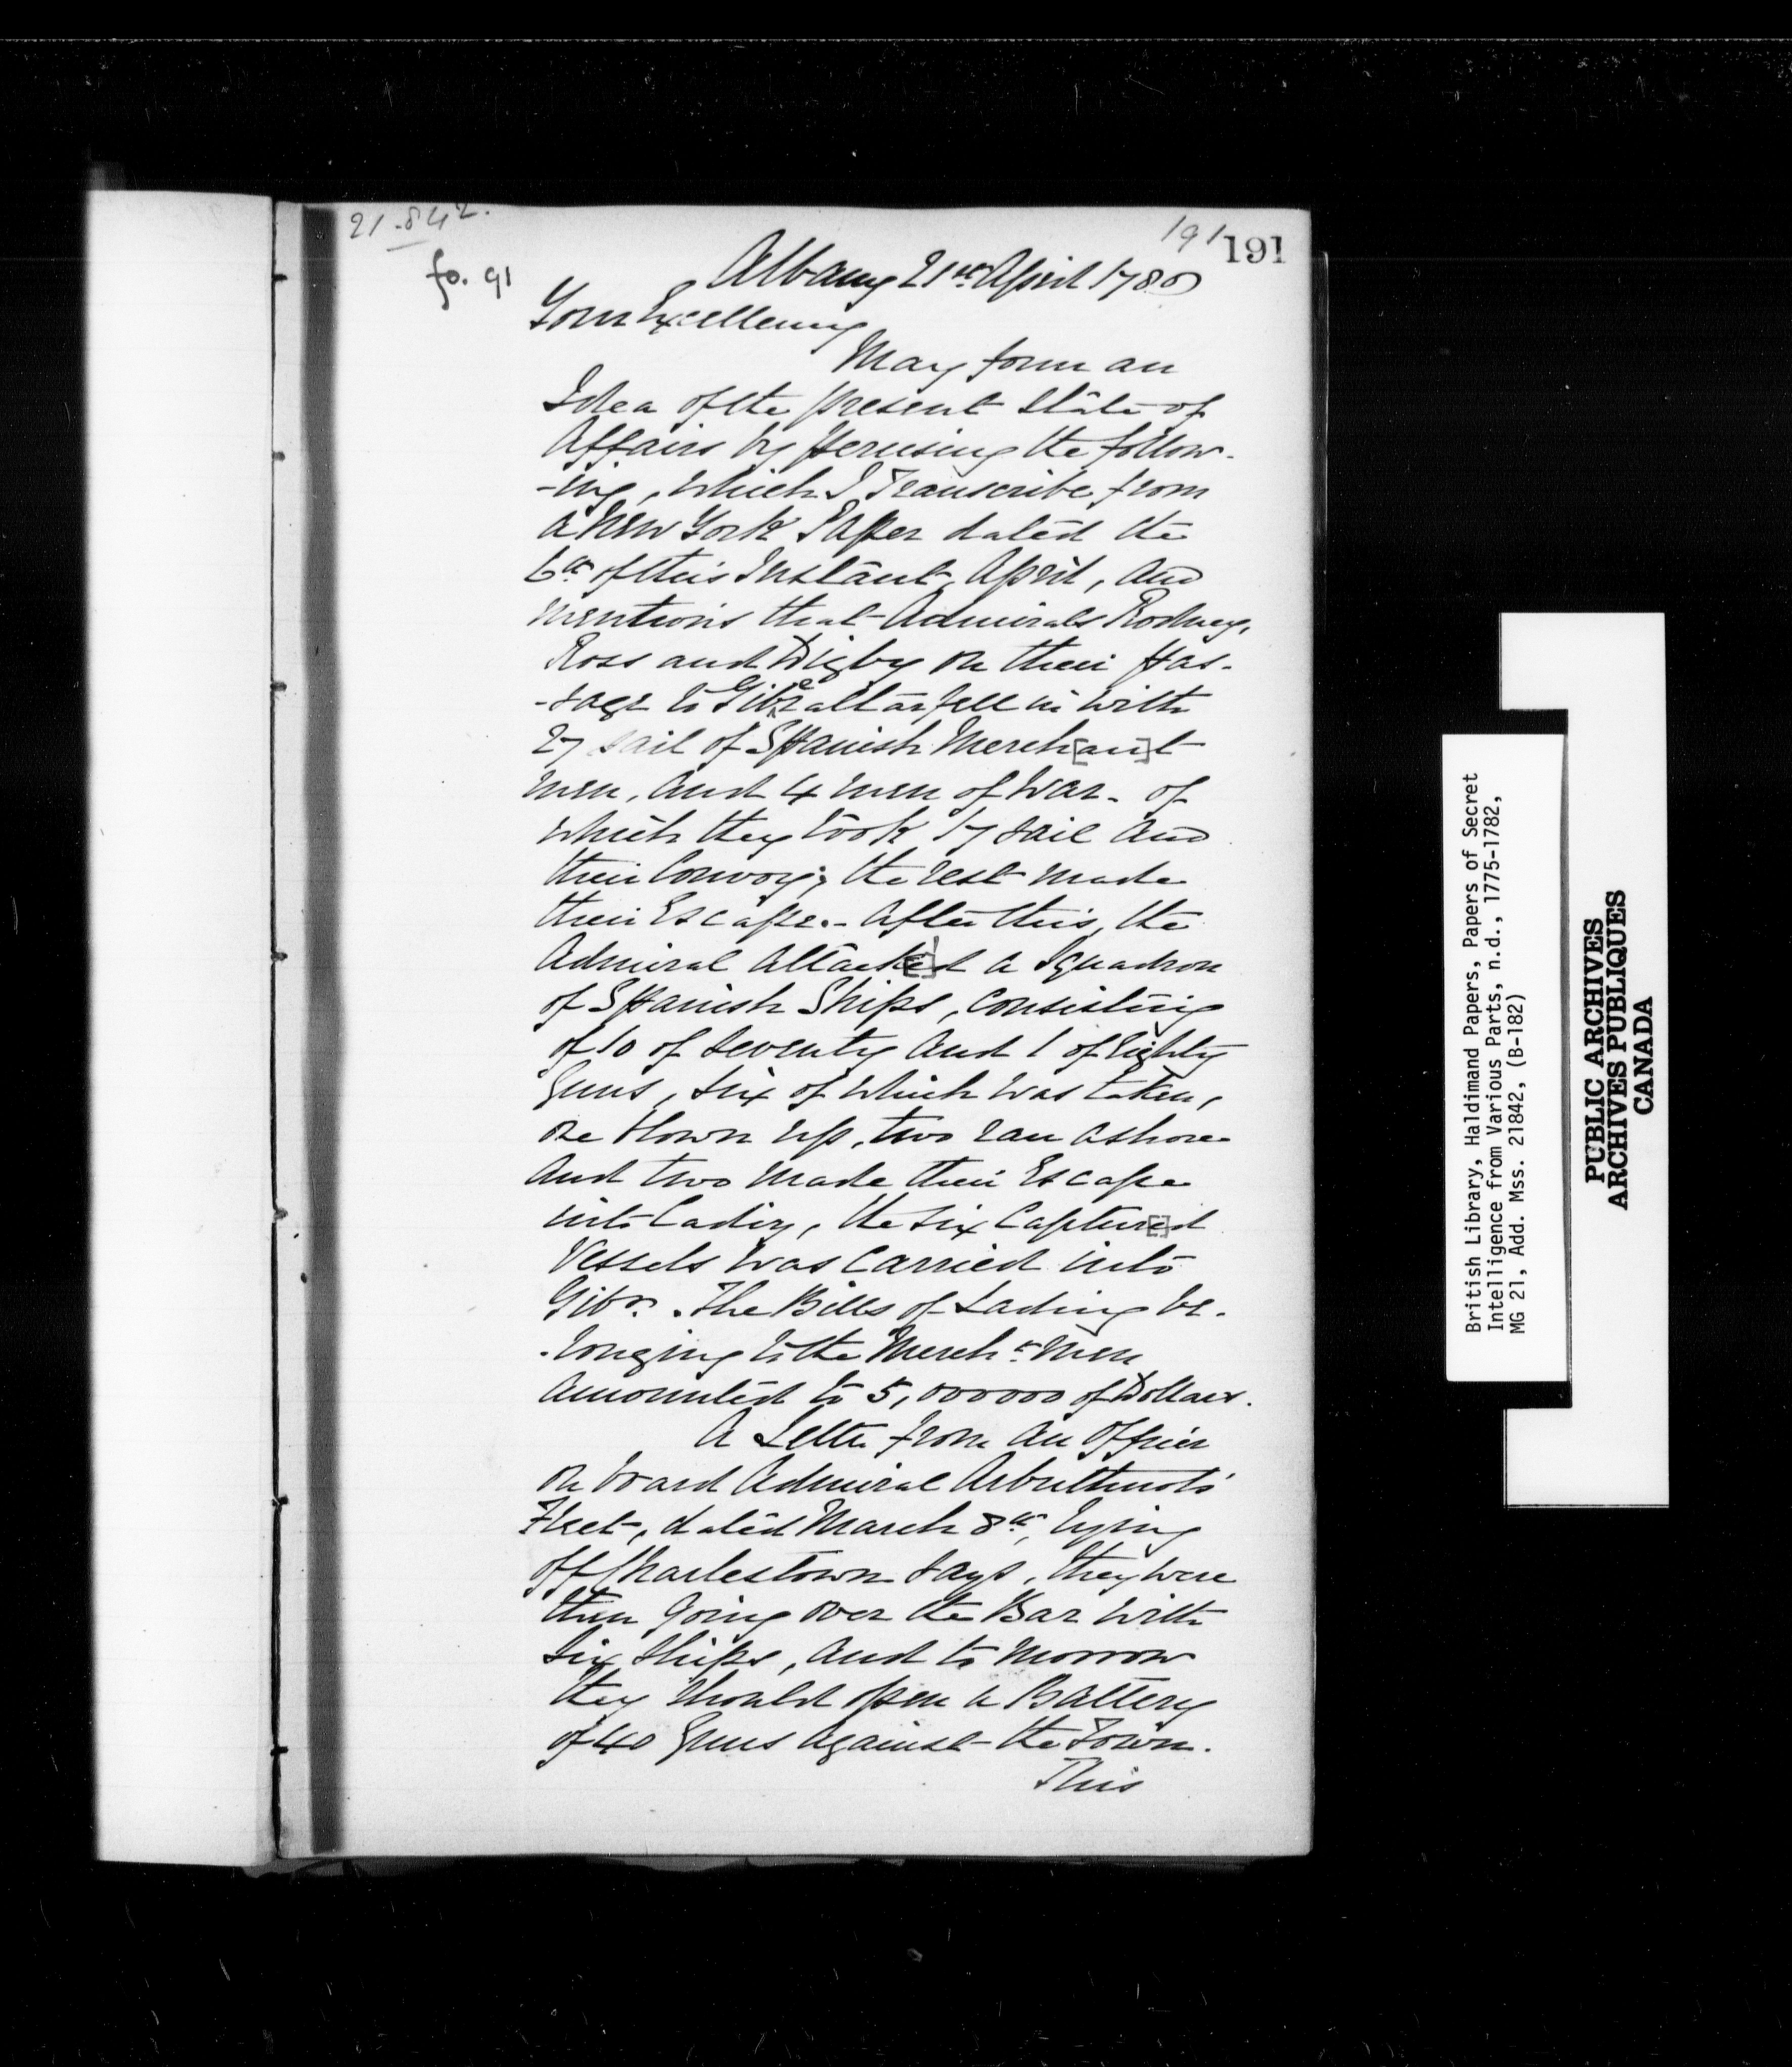 21.842.
fo. 91
191
191
Albany 21st April 1780
Your Excellency
May form an
Idea of the present State of
Affairs by perusing the follow-
-ing, which I Transcribe from
a New York Paper dated the
6th of this Instant, April, and
mentions that Admirals Rodney,
Ross and Digby on their pas-
-sage to Giberaltar fell in with
27 sail of Spanish Merch[an]t
men, and 4 men of War - of
which they took 17 sail and
their Convoy; the rest made
their Escape. - After this, the
Admiral Attack[e]d a Squadron
of Spanish Ships, consisting
of 10 of Seventy and 1 of Eighty
Guns, six of which was taken,
one blown up, two ran ashore
and two made their Escape
into Cadiz, the six Captur[e]d
Vessels was carried into
Gibr. The Bills of Lading be-
-longing to the Mercht men
amounted to 5,000000 of Dollars.
A Letter from an Officer
on board Admiral Arbuthnots'
Fleet, dated March 8th, lying
off Charlestown says, they were
then going over the Bar with
six ships, and to morrow
they should open a Battery
of 40 Guns against the Town.
This
British Library, Haldimand Papers, Papers of Secret
Intelligence from Various Parts, n.d., 1775-1782,
MG 21, Add. Mss. 21842, (B-182)
PUBLIC ARCHIVES
ARCHIVES PUBLIQUES
CANADA